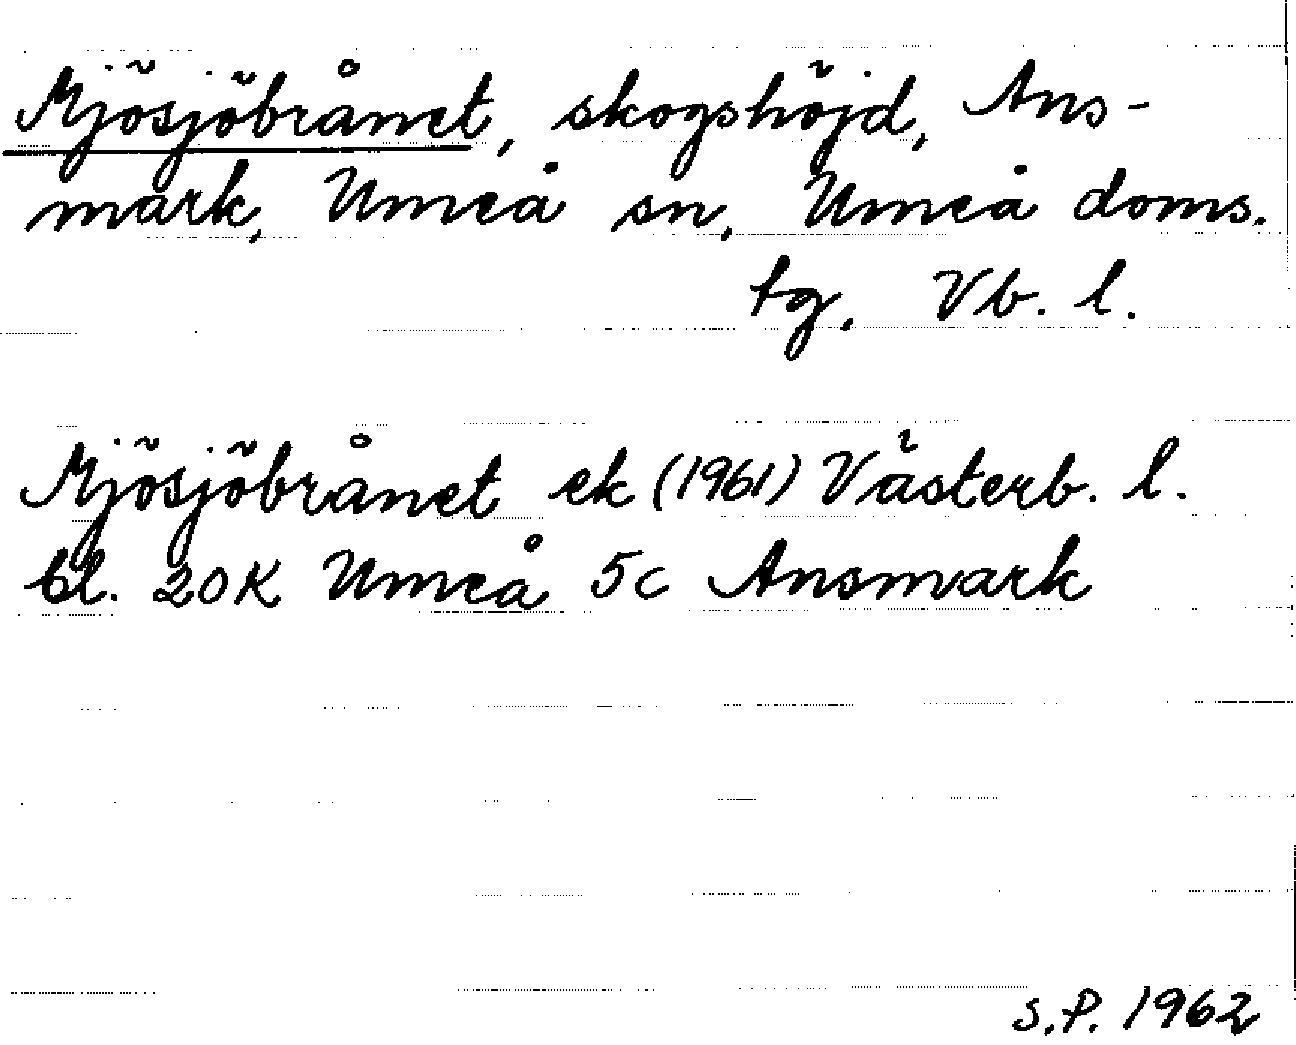 Mjösjöbrånet, skogshöjd, Ans-
mark, Umeå sn, Umeå doms.
tg, Vb. l.
Mjösjöbrånet ek (1961) Västerb. l.
bl. 20K Umeå 5c Ansmark
S.P. 1962